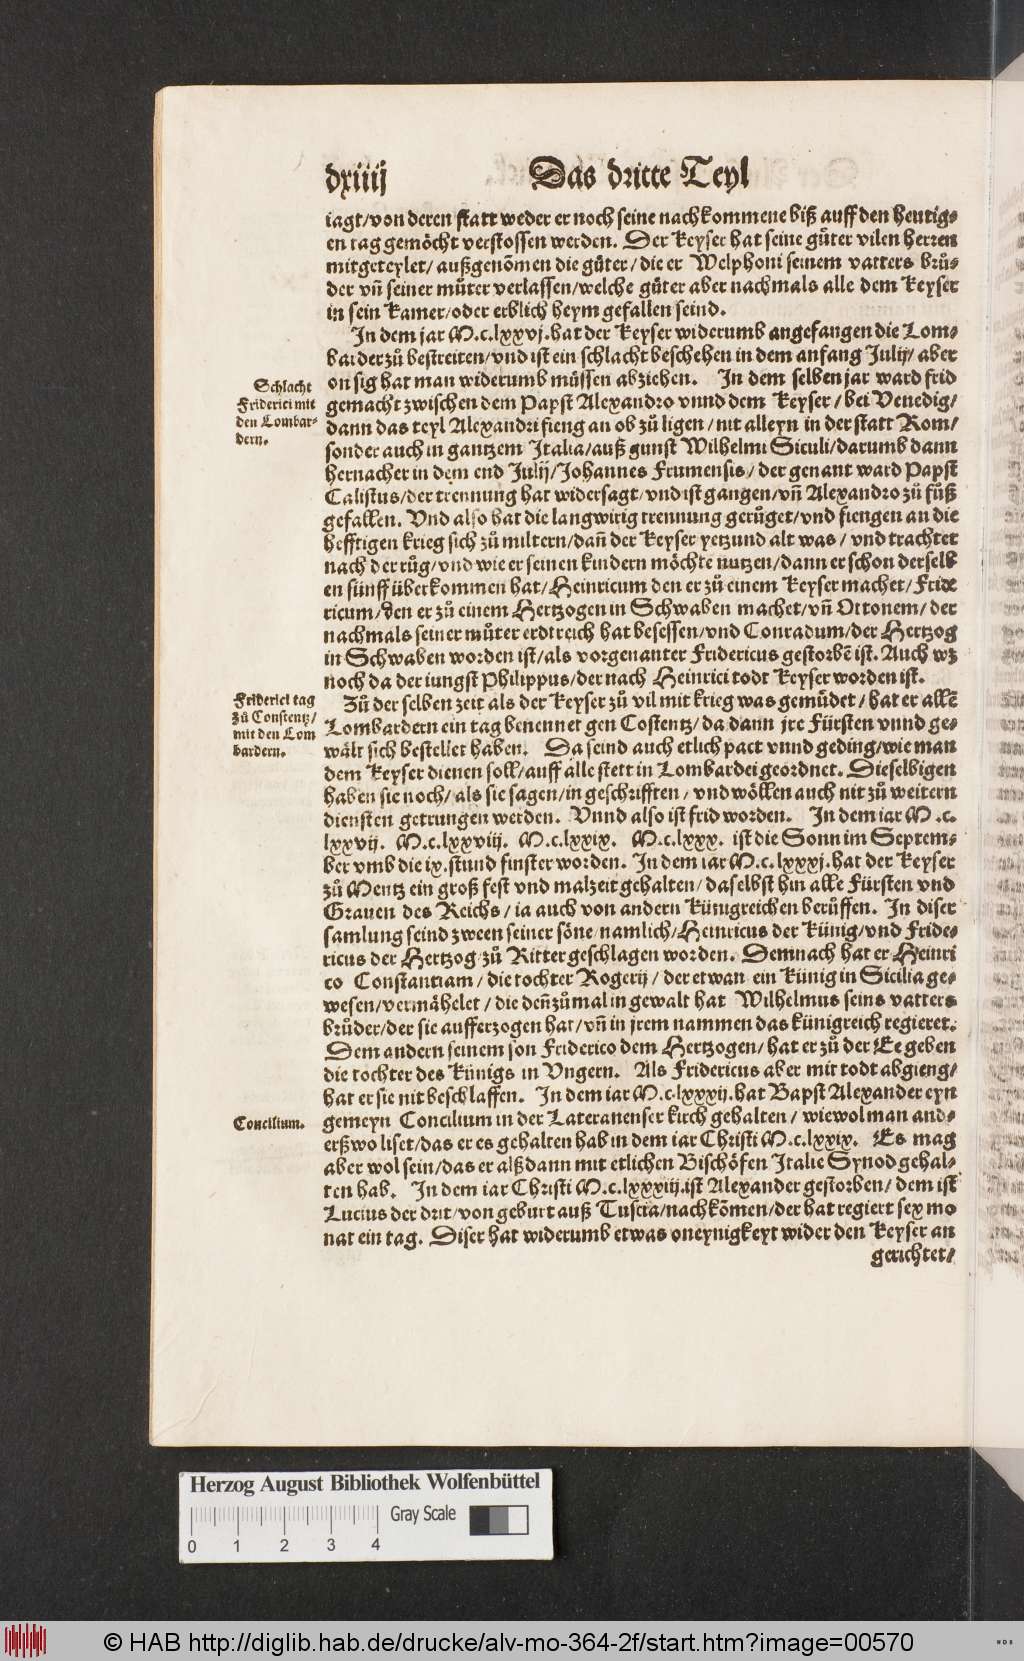 dxiiij
Das dritte Teyl
iagt/von deren statt weder er noch seine nachkommene biß auff den heutig⸗
en tag gemöcht verstossen werden. Der Keyser hat seine gůter vilen herren
mitgeteylet/außgenõmen die gůter/die er Welphoni seinem vatters brů⸗
der vñ seiner můter verlassen/welche gůter aber nachmals alle dem Keyser
in sein Kamer/oder erblich heym gefallen seind.
In dem jar M.c.lxxvj.hat der Keyser widerumb angefangen die Lom⸗
barder zů bestreiten/vnd ist ein schlacht beschehen in dem anfang Julij/aber
on sig hat man widerumb müssen abziehen. In dem selben jar ward frid
Schlacht
Friderici mit
den Lombar⸗
dern.
gemacht zwischen dem Papst Alexandro vnnd dem Keyser/bei Venedig/
dann das teyl Alexandri fieng an ob zů ligen/nit alleyn in der statt Rom/
sonder auch in gantzem Italia/auß gunst Wilhelmi Siculi/darumb dann
hernacher in dem end Julij/Johannes Frumensis/der genant ward Papst
Calistus/der trennung hat widersagt/vnd ist gangen/vñ Alexandro zů fůß
gefallen. Vnd also hat die langwirig trennung gerůget/vnd fiengen an die
hefftigen krieg sich zů miltern/dañ der Keyser yetzund alt was/vnd trachtet
nach der růg/vnd wie er seinen kindern möchte nutzen/dann er schon derselb
en fünff überkommen hat/Heinricum den er zů einem Keyser machet/Fride
ricum/den er zů einem Hertzogen in Schwaben machet/vñ Ottonem/der
nachmals seiner můter erdtreich hat besessen/vnd Conradum/der Hertzog
in Schwaben worden ist/als vorgenanter Fridericus gestorbẽ ist. Auch wz
noch da der iungst Philippus/der nach Heinrici todt Keyser worden ist.
Friderici tag
zů Constentz/
mit den Lom
bardern.
Zů der selben zeit als der Keyser zů vil mit krieg was gemůdet/hat er allẽ
Lombardern ein tag benennet gen Costentz/da dann jre Fürsten vnnd ge⸗
wält sich bestellet haben. Da seind auch etlich pact vnnd geding/wie man
dem Keyser dienen soll/auff alle stett in Lombardei geordnet. Dieselbigen
haben sie noch/als sie sagen/in geschrifften/vnd wöllen auch nit zů weitern
diensten getrungen werden. Vnnd also ist frid worden. In dem iar M.c.
lxxvij. M.c.lxxviij. M.c.lxxix. M.c.lxxx. ist die Sonn im Septem⸗
ber vmb die ix.stund finster worden. In dem iar M.c.lxxxj.hat der Keyser
zů Mentz ein groß fest vnd malzeit gehalten/daselbst hin alle Fürsten vnd
Grauen des Reichs/ia auch von andern Künigreichen berůffen. In diser
samlung seind zween seiner söne/namlich/Heinricus der Künig/vnd Fride⸗
ricus der Hertzog/zů Ritter geschlagen worden. Demnach hat er Heinri
co Constantiam/die tochter Rogerij/der etwan ein Künig in Sicilia ge⸗
wesen/vermähelet/die deñzůmal in gewalt hat Wilhelmus seins vatters
brůder/der sie aufferzogen hat/vñ in jrem nammen das künigreich regieret.
Dem andern seinem son Friderico dem Hertzogen/hat er zů der Ee geben
die tochter des Künigs in Vngern. Als Fridericus aber mit todt abgieng/
hat er sie nit beschlaffen. In dem iar M.c.lxxxij.hat Bapst Alexander eyn
Concilium.
gemeyn Concilium in der Lateranenser kirch gehalten/wiewol man and⸗
erßwo liset/das er es gehalten hab in dem iar Christi M.c.lxxix. Es mag
aber wol sein/das er alßdann mit etlichen Bischöfen Italie Synod gehal⸗
ten hab. In dem iar Christi M.c.lxxxiij.ist Alexander gestorben/dem ist
Lucius der drit/von geburt auß Tuscia/nachkõmen/der hat regiert sex mo
nat ein tag. Diser hat widerumb etwas oneynigkeyt wider den Keyser an
gerichtet/
Herzog August Bibliothek Wolfenbüttel
Gray Scale
0 1 2 3 4
© HAB http://diglib.hab.de/drucke/alv-mo-364-2f/start.htm?image=00570